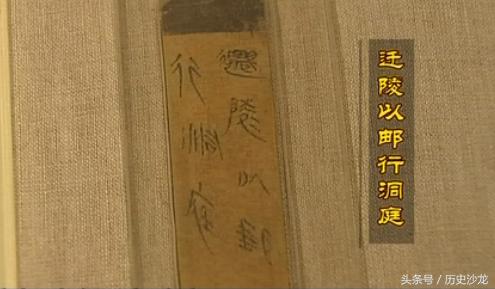 遷陵以郵
行洞庭
迁陵以邮行洞庭
头条号 / 历史沙龙